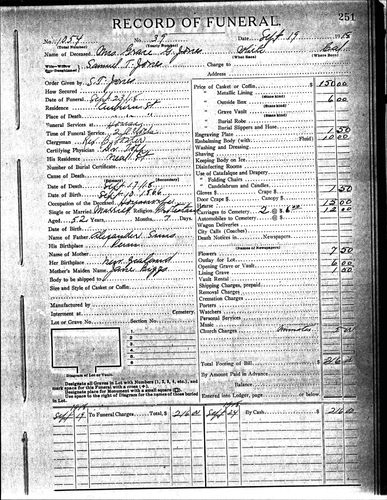 251
RECORD OF FUNERAL.
No. 1057 No. 39 Date Sept 19 1918
(Total Number) (Yearly Number)
Name of Deceased Mrs. Grace L. Jones White
(What Race) (Where Born)
Samuel T. Jones Charge to
Address
Order Given by S.T. Jones
How Secured
Date of Funeral Sept
Residence St
Place of Death
Funeral Services at House
Time of Funeral Service 2
Clergyman Rev.
Certifying Physician
His Residence
Number of Burial Certificate
Cause of Death
(Primary) (Secondary)
Date of Death Sept 17/18
Date of Birth Sept 1866
Occupation of the Deceased Housewife
Single or Married Married Religion
Aged 52 Years Months Days
Name of Father Alexander Sims
His Birthplace
Name of Mother
Her Birthplace New Zealand
Mother's Maiden Name Jane Biggs
Body to be Shipped to
Size and Style of Casket or Coffin
Manufactured by
Interment at Cemetery
Lot or Grave No. Section No.
1
2
3
4
5
6
Diagram of Lot or Vault.
Designate all Graves in Lot with Numbers (1, 2, 3, 4, etc.), and
mark space for this Funeral with a cross (+).
Designate place for Monument with a small square
Use space to the right of Diagram for the names of those buried
in Lot.
Price of Casket or Coffin $ 150 00
" Metallic Lining
" Outside Box 6 00
" Grave Vault
" Burial Robe
" Burial Slippers and Hose
Engraving Plate 50
Embalming Body (with Fluid) 10 00
Washing and Dressing
Shaving
Keeping Body on Ice
Disinfecting Rooms
Use of Catafalque and Drapery
" Folding Chairs
" Candelabrum and Candles
Gloves $ Crape $ 1 50
Door Crape $ Canopy $
Hearse 15 00
Carriages to Cemetery 2 @ $ 6.00 12 00
Automobiles to Cemetery @ $
Wagon Deliveries
City Calls (Coaches)
Death Notices in Newspapers
(Names of Newspapers)
Flowers 7 50
Outlay for Lot
Opening Grave or Vault 6 00
Lining Grave 50
Vault Rental
Shipping Charges, prepaid
Removal Charges
Cremation Charges
Porters
Watchers
Personal Services
Music
Church Charges
Total Footing of Bill $ 216
By Amount Paid in Advance
Balance
Entered into Ledger, page or below
Sept 19 To Funeral Charges Total, $ 216 Sept 24 By Cash $ 216 00